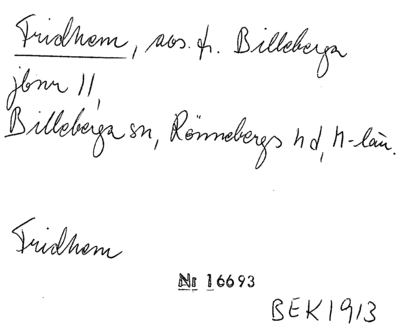 Fridhem, avs. fr. Billeberga
jbnr 11,
Billeberga sn, Rönnebergs hd, M-län.
Fridhem
Nr 16693
BEK 1913